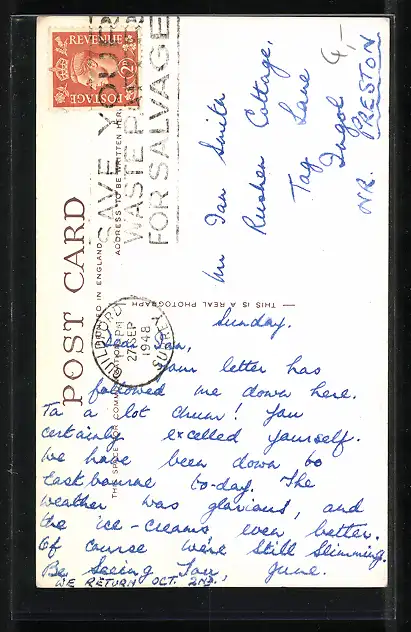 REVENUE
POSTAGE
2D
SAVE YOUR
WASTE PAPER
FOR SALVAGE
GUILDFORD
SURREY
PM
27 SEP
1948
POST CARD
PRINTED IN ENGLAND
THIS SPACE FOR COMMUNICATION
ADDRESS TO BE WRITTEN HERE
THIS IS A REAL PHOTOGRAPH
4/-
Mr Ian Smith
Rushen Cottage,
Tag Lane
Ingol
NR. PRESTON
Sunday.
Dear Ian,
Your letter has
followed me down here.
Ta a lot chum! You
certainly excelled yourself.
We have been down to
Eastbourne to-day. The
weather was glorious, and
the ice-creams even better.
Of course we're still slimming.
Be Seeing You, June.
WE RETURN OCT. 2ND.,